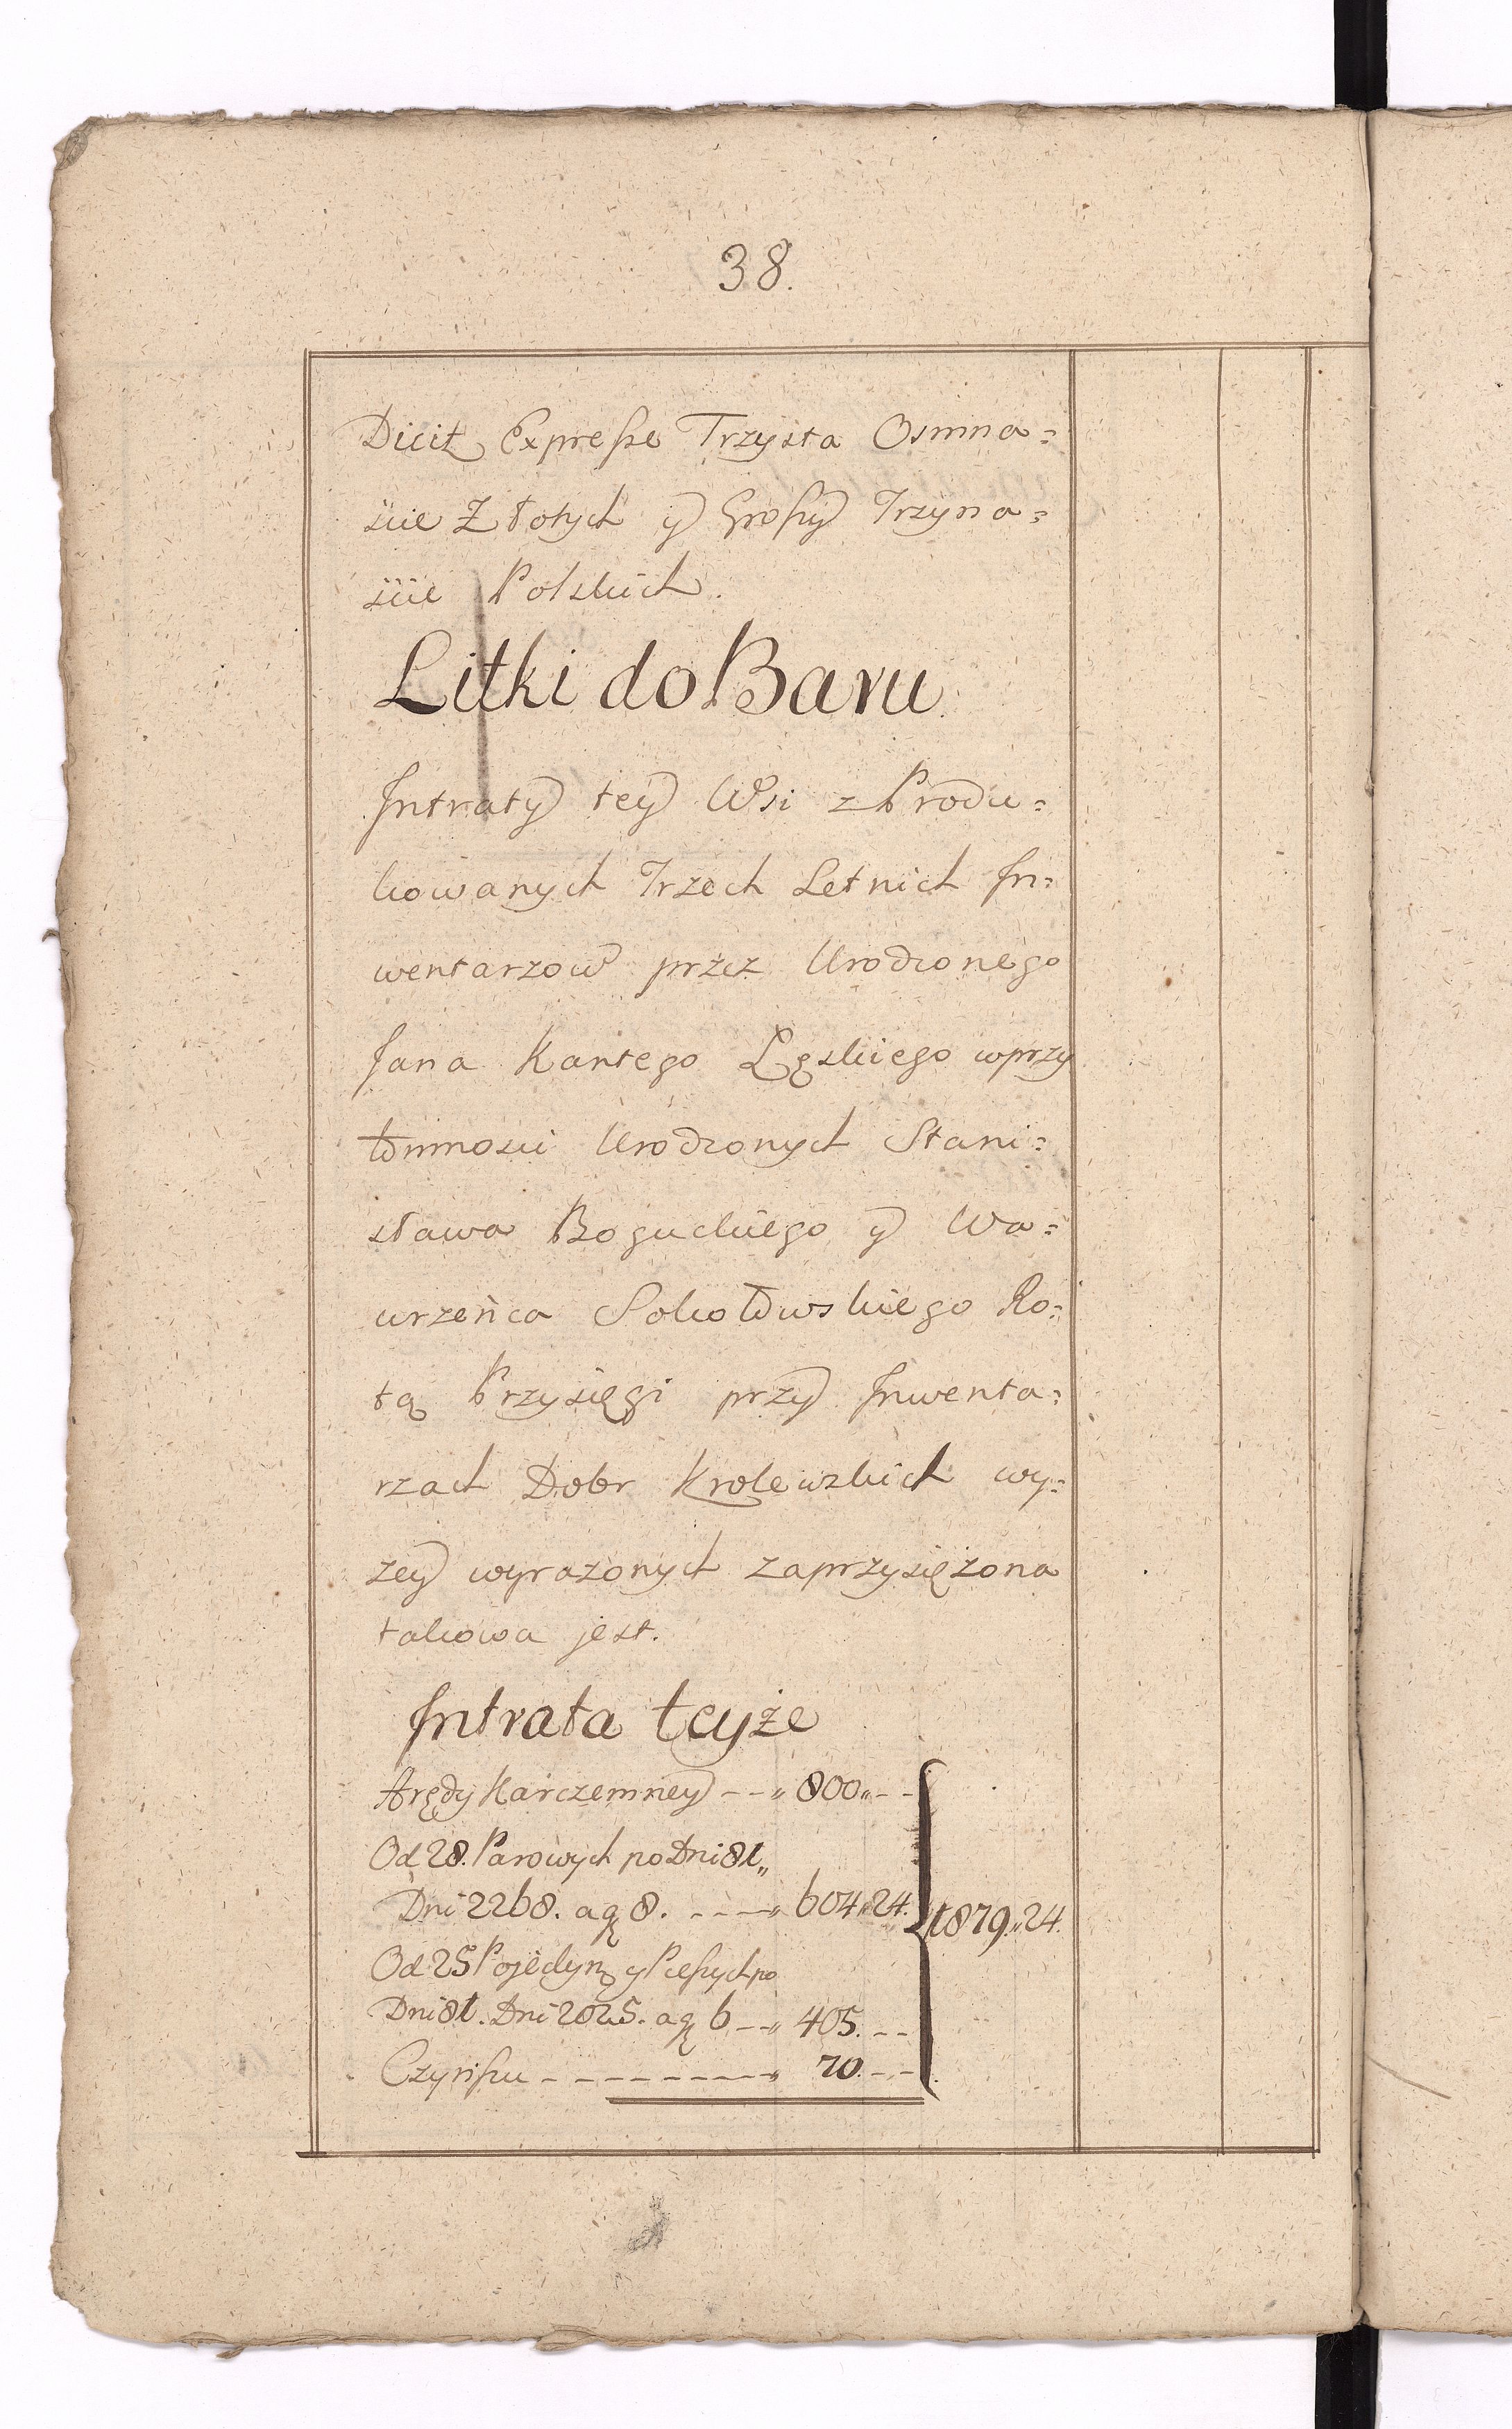 38.
Dicit Expresse Trzysta Osmna=
scie Złotych y Groszy Trzyna=
scie Polskich.
Litki do Baru
Intraty tey Wsi z Produ=
kowanych Trzech Letnich In=
wentarzow przez Urodzonego
Jana Kantego Łęskiego w przy
tomnosci Urodzonych Stani=
sława Boguckiego y Wa=
wrzeńca Sokołowskiego Ro=
tą Przysięgi przy Inwenta=
rzach Dobr Krolewskich wy=
zey wyrazonych zaprzysiężona
takowa jest.
Intrata teyże
Arędy Karczemney - - " 800 " - -
Od 28. Parowych po Dni 81 "
Dni 2268. a gr 8. - - - - " 604 " 24.
Od 25 Pojedyn: y Pieszych po
Dni 81. Dni 2025. a gr 6 - - " 405. - -
Czynszu - - - - - - - - " 70. - -
1879 " 24.